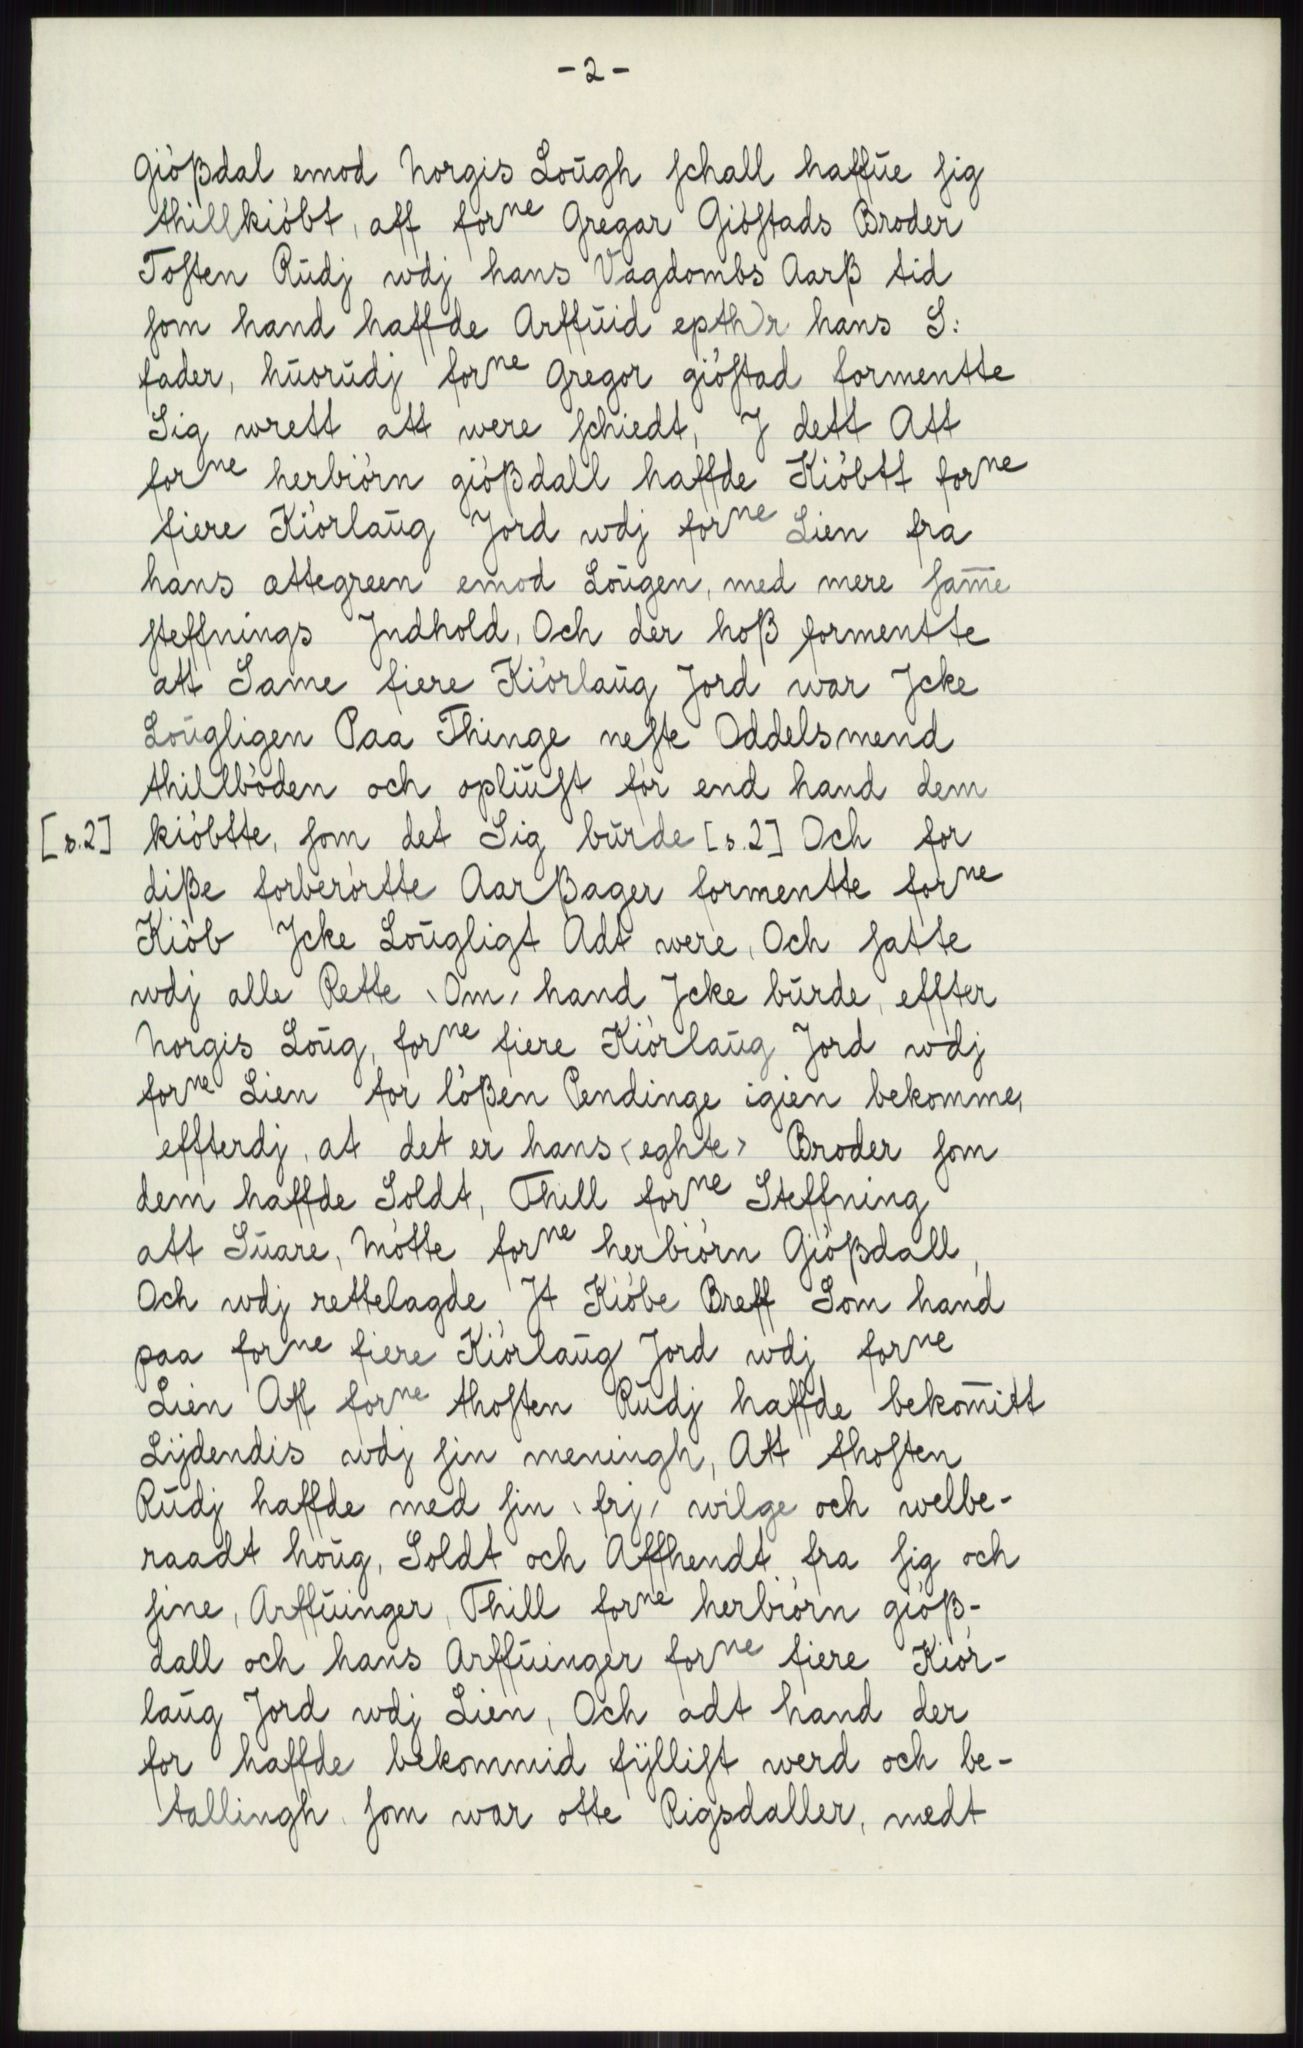 - 2 -
Giößdal emod Norgis Loŭgh schall haffŭe sig
thillkiöbt, aff forne Gregar Giöstads Broder
Tosten Rŭdj wdj hans Vagdombs Aarß tid
som hand haffde Arffŭid epth)r hans S:
fader, hŭorŭdj forne Gregor giöstad formentte
Sig wrett att were schiedt, J dett Att
forne herbiörn giößdall haffde Kiöbtt forne
fiere Kiörlaŭg Jord wdj forne Lien fra
hans ættegreen emod Loŭgen, med mere sam̄e
steffnings Jndhold, Och der hoß formentte
att Same fiere Kiörlaŭg Jord war Jcke
Loŭgligen Paa Thinge neste Oddelsmend
thillböden och opliŭst för end hand dem
[s.2] kiöbtte, som det Sig bŭrde [s.2] Och for
diße forberörtte Aarßager formentte forne
Kiöb Jcke Loŭgligt Adt were, Och satte
wdj alle Rette \Om/ hand Jcke bŭrde, effter
Norgis Loŭg, forne fiere Kiörlaŭg Jord wdj
forne Lien for lößen Pendinge igien bekomme,
effterdj, at det er hans <eghte> Broder som
dem haffde Soldt, Thill forne Steffning
att Sŭare, Mötte forne herbiörn Giößdall,
Och wdj rettelagde Jt Kiöbe Breff Som hand
paa forne fiere Kiörlaŭg Jord wdj forne
Lien Aff forne thosten Rŭdj haffde bekom̄itt
Lÿdendis wdj sin meningh, Att thosten
Rŭdj haffde med sin \frj/ wilge och welbe-
raadt hoŭg, Soldt och Affhendt fra sig och
sine, Arffŭinger, Thill forne herbiörn giöß-
dall och hans Arffŭinger forne fiere Kiör-
laŭg Jord wdj Lien, Och adt hand der
for haffde bekommid fÿllist werd och be-
tallingh, som war otte Rigsdaller, medt